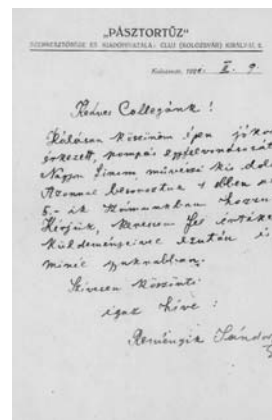 „PÁSZTORTŰZ"
SZERKESZTŐSÉGE ÉS KIADÓHIVATALA: CLUJ (KOLOZSVÁR)
Kolozsvár, 192 . II. 9.
Kedves Collegánk!
Hálásan köszönöm épen jókor
érkezett, pompás egyfelvonásosát.
Nagyon finom, művészi kis dolog.
Azonnal besoroztuk s ebben a
5.-ik számunkban hozzuk
Kérjük, keressen fel értékes
küldeményeivel ezután is
minél gyakrabban.
Szívesen köszönti
igaz híve:
Reményik Sándor